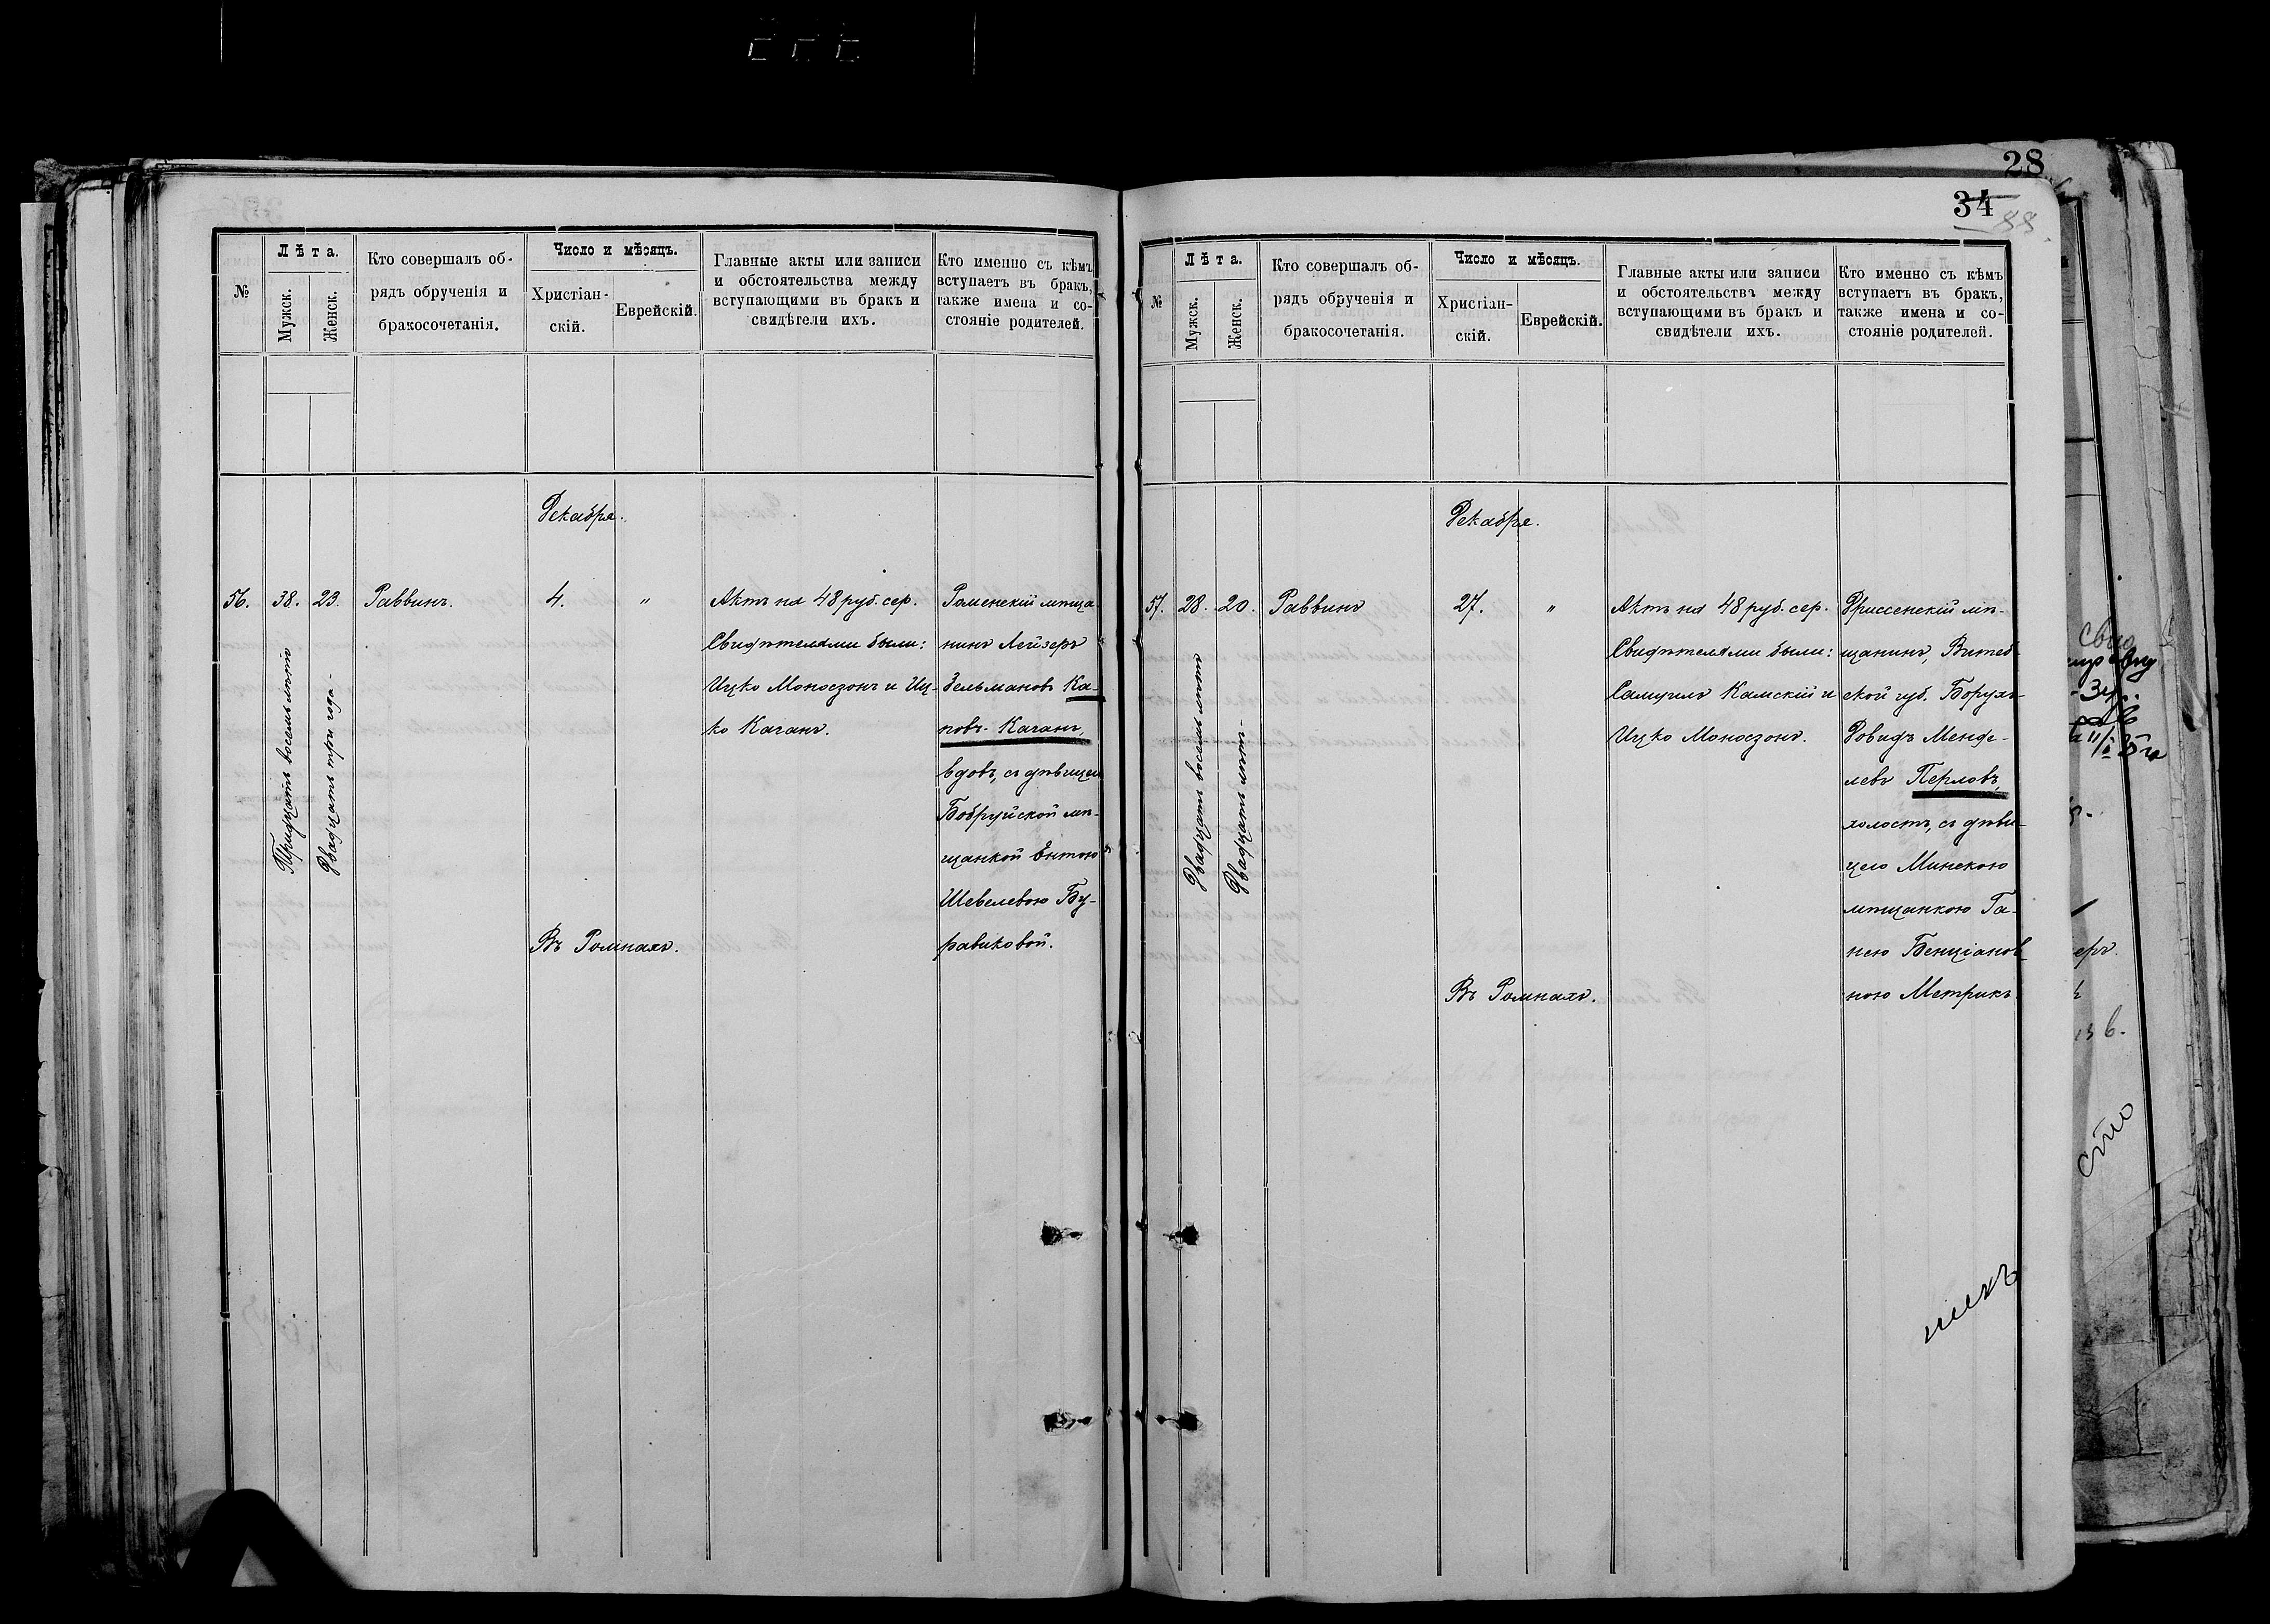 №
Лѣта.
Мужск.
Женск.
Кто совершалъ об-
рядъ обрученія и
бракосочетанія.
Число и мѣсяцъ.
Христіан-
скій.
Еврейскій.
Главные акты или записи
и обстоятельства между
вступающими въ бракъ и
свидѣтели ихъ.
Кто именно съ кѣмъ
вступаетъ въ бракъ,
также имена и со-
стояніе родителей.
Декабря.
56.
38.
Тридцать восемь лѣтъ
23.
Двадцать три года-
Раввинъ.
4.
"
Въ Ромнахъ.
Актъ на 48 руб. сер.
Свидѣтелями были:
Ицко Моносзонъ и Иц-
ко Каганъ.
Роменскій мѣща-
нинъ Лейзеръ
Зельмановъ Ка-
повъ-Каганъ,
вдовъ, съ дѣвицею
Бобруйской мѣ-
щанкой Ентою
Шевелевою Бу-
равиковой.
28
34
88.
№
Лѣта.
Мужск.
Женск.
Кто совершалъ об-
рядъ обрученія и
бракосочетанія.
Число и мѣсяцъ.
Христіан-
скій.
Еврейскій.
Главные акты или записи
и обстоятельства между
вступающими въ бракъ и
свидѣтели ихъ.
Кто именно съ кѣмъ
вступаетъ въ бракъ,
также имена и со-
стояніе родителей.
Декабря.
57.
28.
Двадцать восемь лѣтъ
20.
Двадцать лѣтъ-
Раввинъ
27.
"
Въ Ромнахъ.
Актъ на 48 руб. сер.
Свидѣтелями были:
Самуилъ Камскій и
Ицко Моносзонъ.
Дриссенскій мѣ-
щанинъ, Витеб-
ской губ. Борухъ-
Довидъ Менде-
левъ Перловъ,
холостъ, съ дѣви-
цею Минскою
мѣщанкою Га-
нею Бенціанов-
ною Метрикъ.